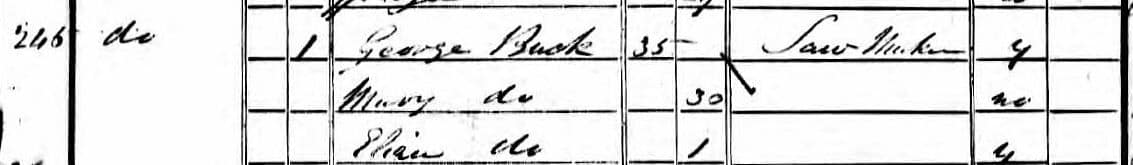 246 do 1 George Buck 35 Saw Maker y
Mary do 30 no
do 1 y